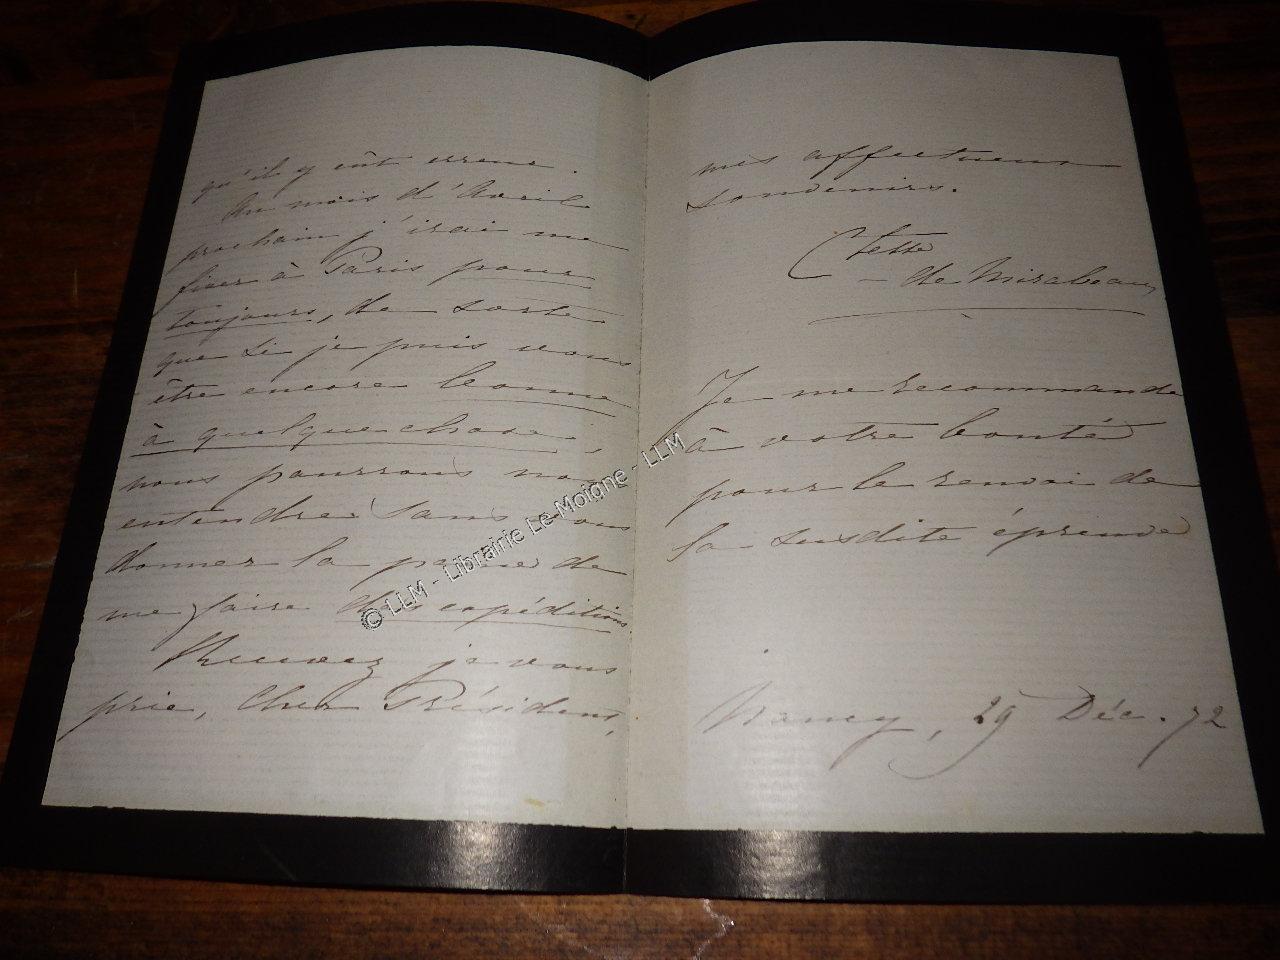 qu'il y eût erreur.
Au mois d'Avril
prochain j'irai me
fixer à Paris pour
toujours, de sorte
que si je puis vous
être encore bonne
à quelque chose,
nous pourrons nous
entendre sans vous
donner la peine de
me faire des expéditions.
Recevez je vous
prie, Cher Président,
mes affectueux
souvenirs.
Ctesse
de Mirabeau
Je me recommande
à votre bonté
pour le renvoi de
la susdite épreuve
Nancy, 29 Déc. 72
© LLM - Librairie Le Moigne - LLM